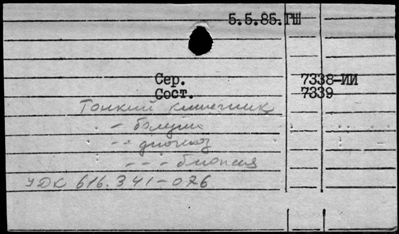 5.5.85.ГШ
Сер. 7338-ИИ
Сост. 7339
Тонкий кишечник
-"- болезни
-"- диагноз
-"-"-"- биопсия
УДК 616.341-076